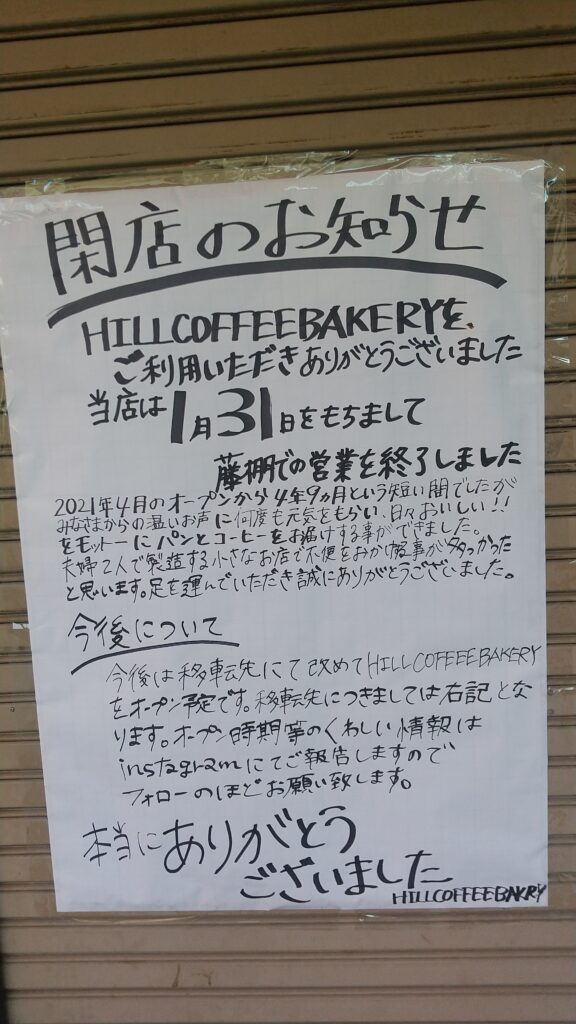 閉店のお知らせ
HILLCOFFEEBAKERYを、
ご利用いただきありがとうございました
当店は1月31日をもちまして
藤棚での営業を終了しました
2021年4月のオープンから4年9ヵ月という短い間でしたが
みなさまからの温いお声に何度も元気をもらい、日々おいしい!!
をモットーにパンとコーヒーをお届けする事ができました。
夫婦2人で製造する小さなお店で不便をおかけ致事が多っかった
と思います。足を運んでいただき誠にありがとうございました。
今後について
今後は移転先にて改めてHILLCOFFEEEBAKERY
をオープン予定です。移転先につきましては右記とな
ります。オープン時期等のくわしい情報は
instagramにてご報告しますので
フォローのほどお願い致します。
本当にありがとう
ございました
HILLCOFFEEBAKRY